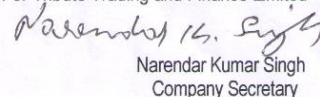 Tribute Trading and Finance Limited
Narendar K. Singh
Narendar Kumar Singh
Company Secretary